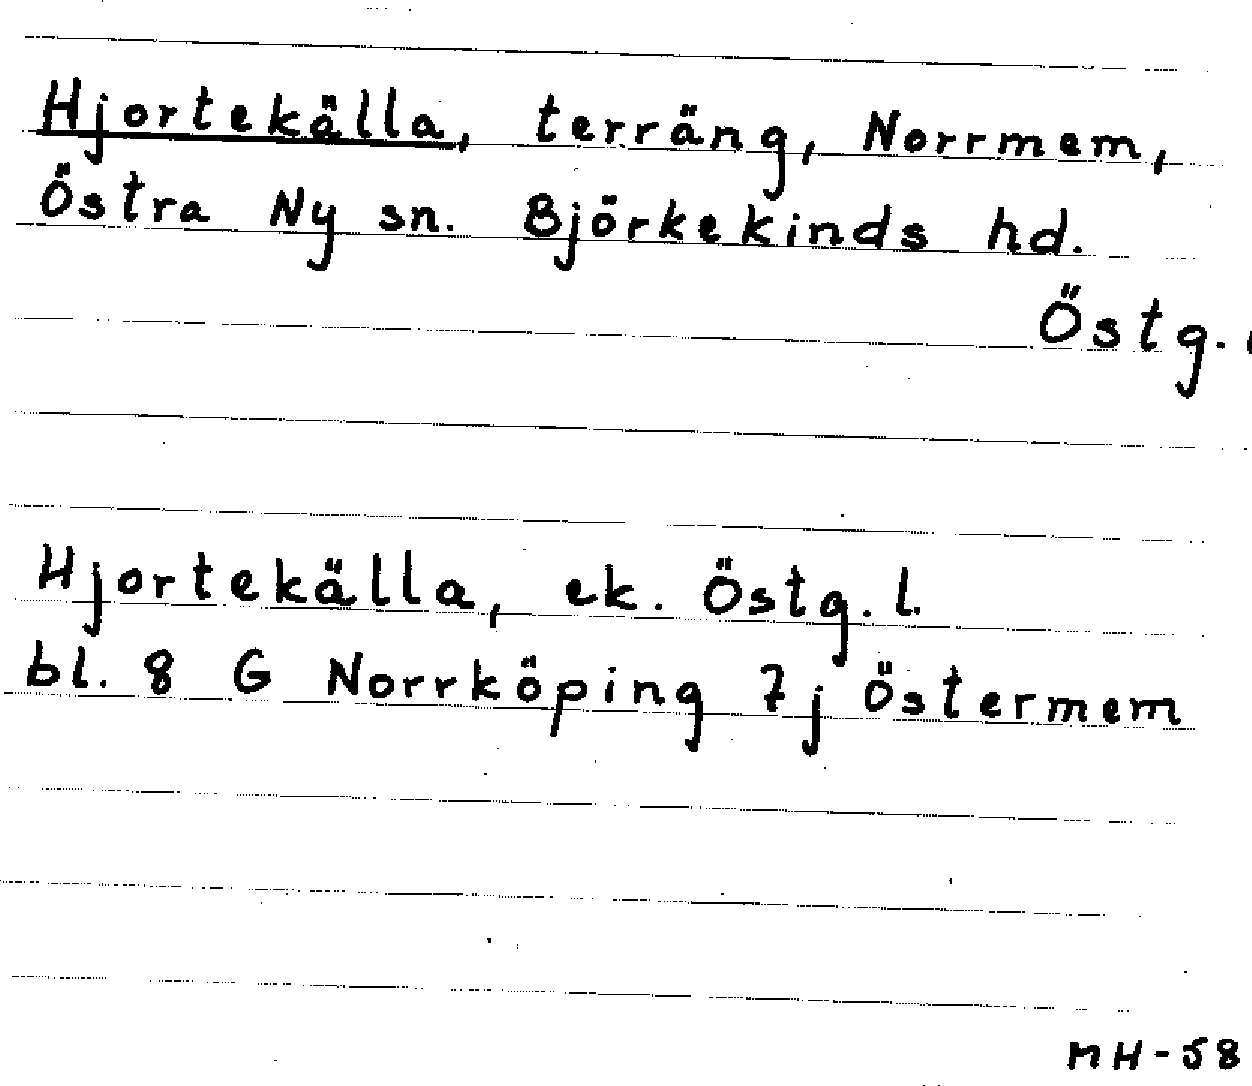 Hjortekälla, terräng, Norrmem,
Östra Ny sn. Björkekinds hd.
Östg. l
Hjortekälla, ek. Östg. l.
bl. 8 G Norrköping 7j Östermem
MH-58